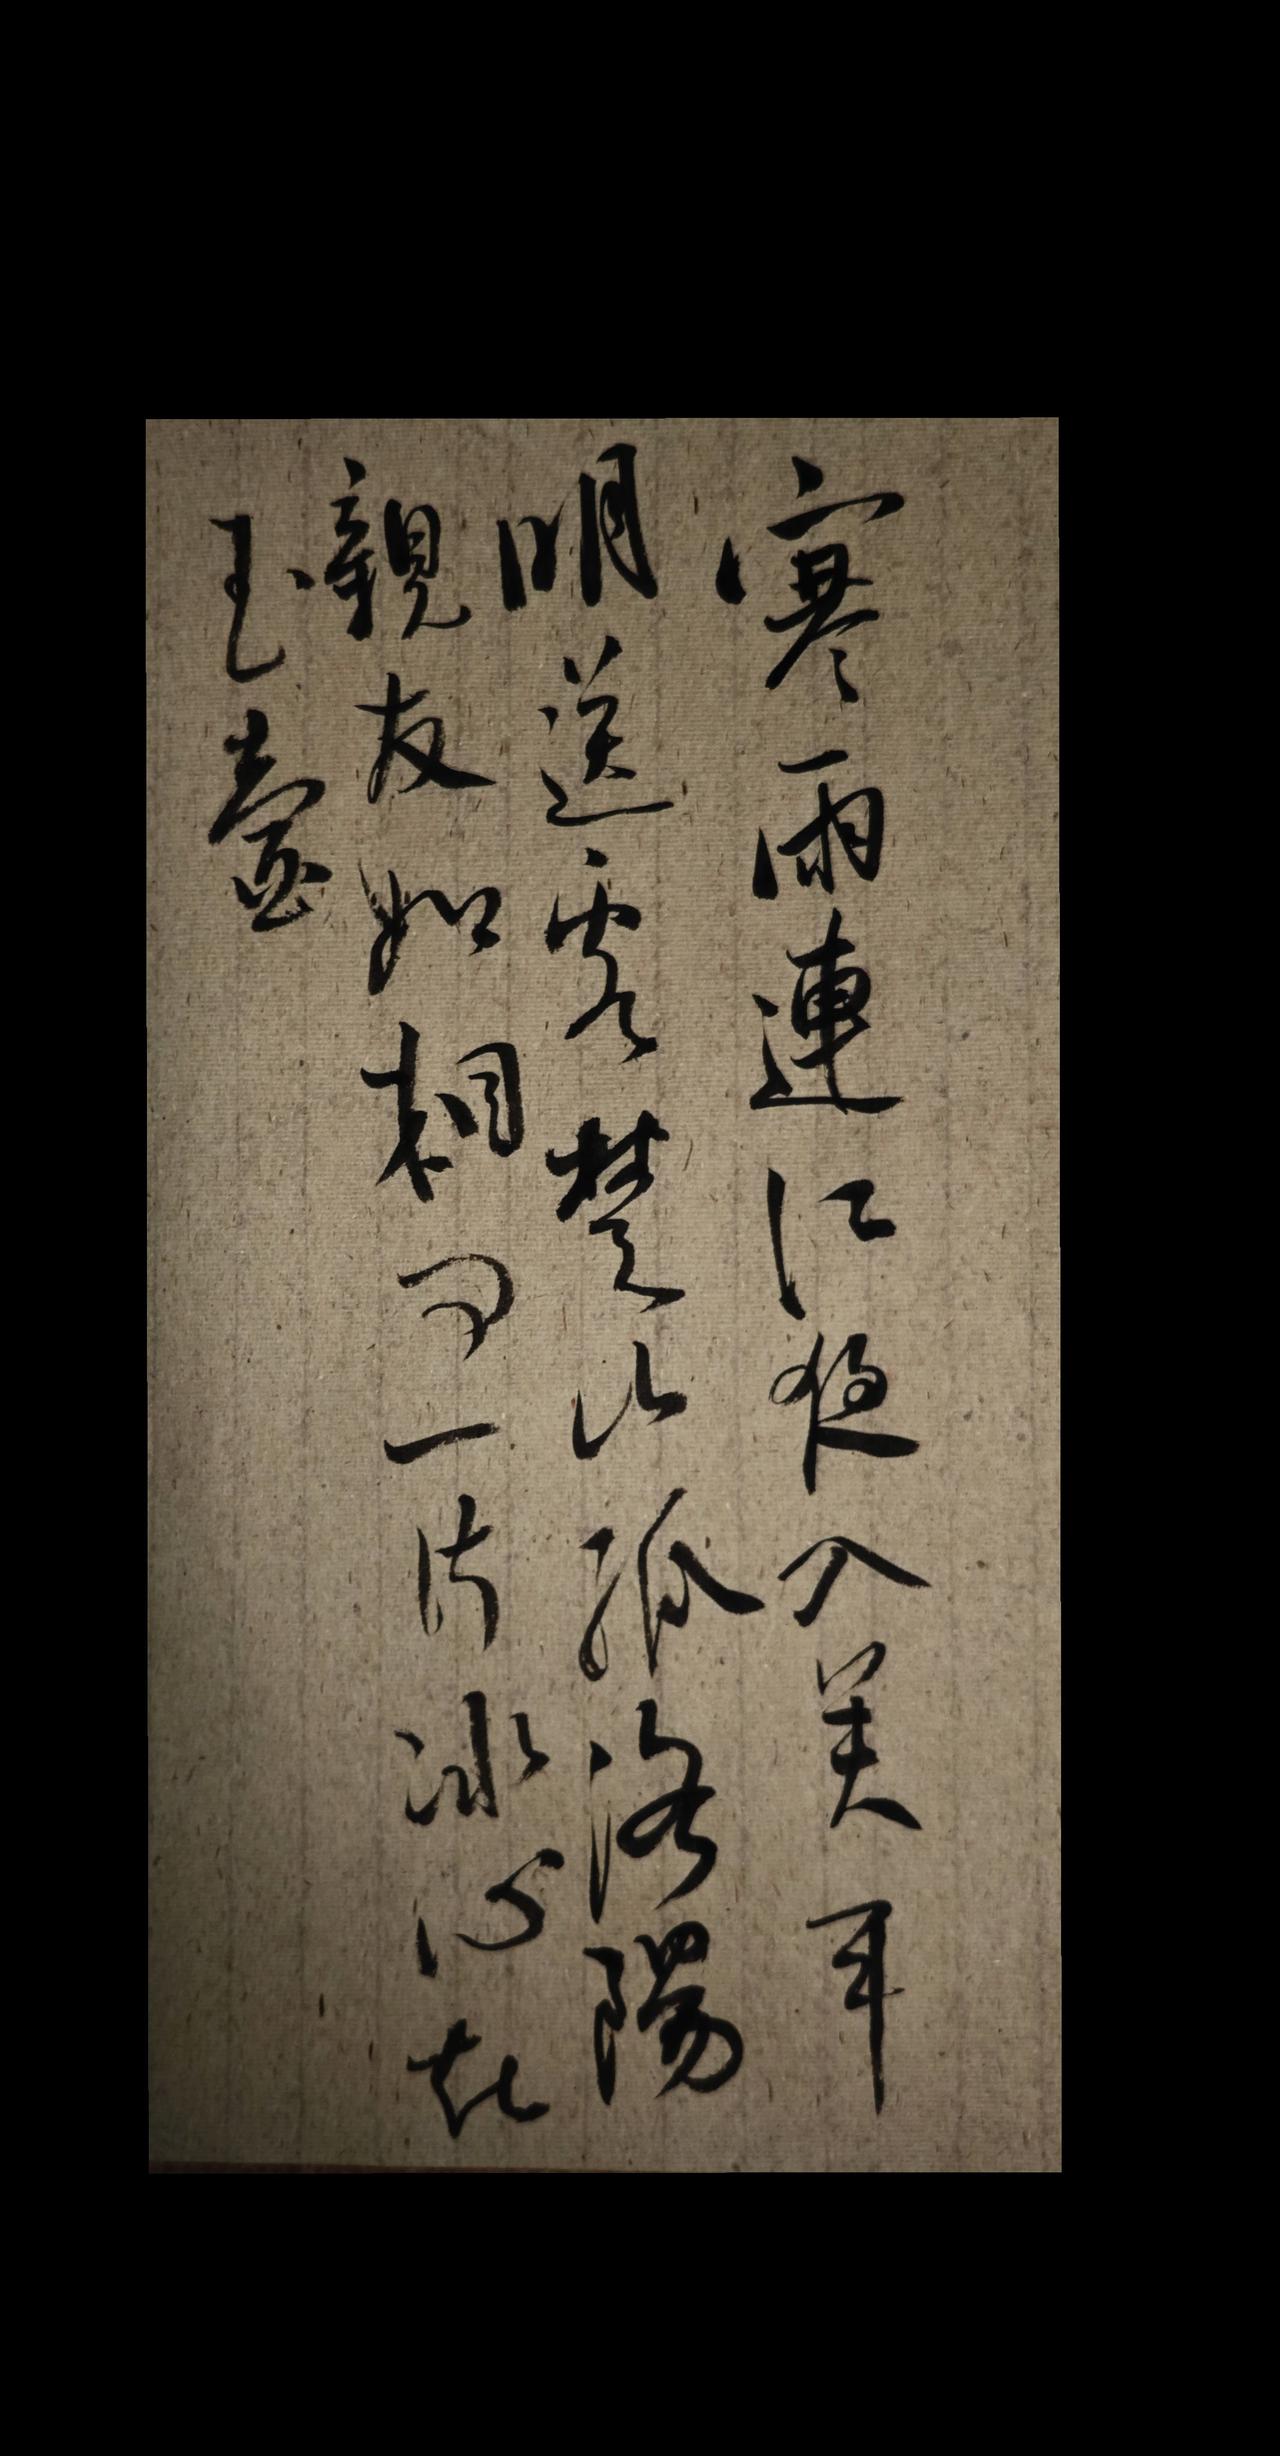 寒雨連江夜入吴平
明送客楚山孤洛陽
親友如相问一片冰心在
玉壺